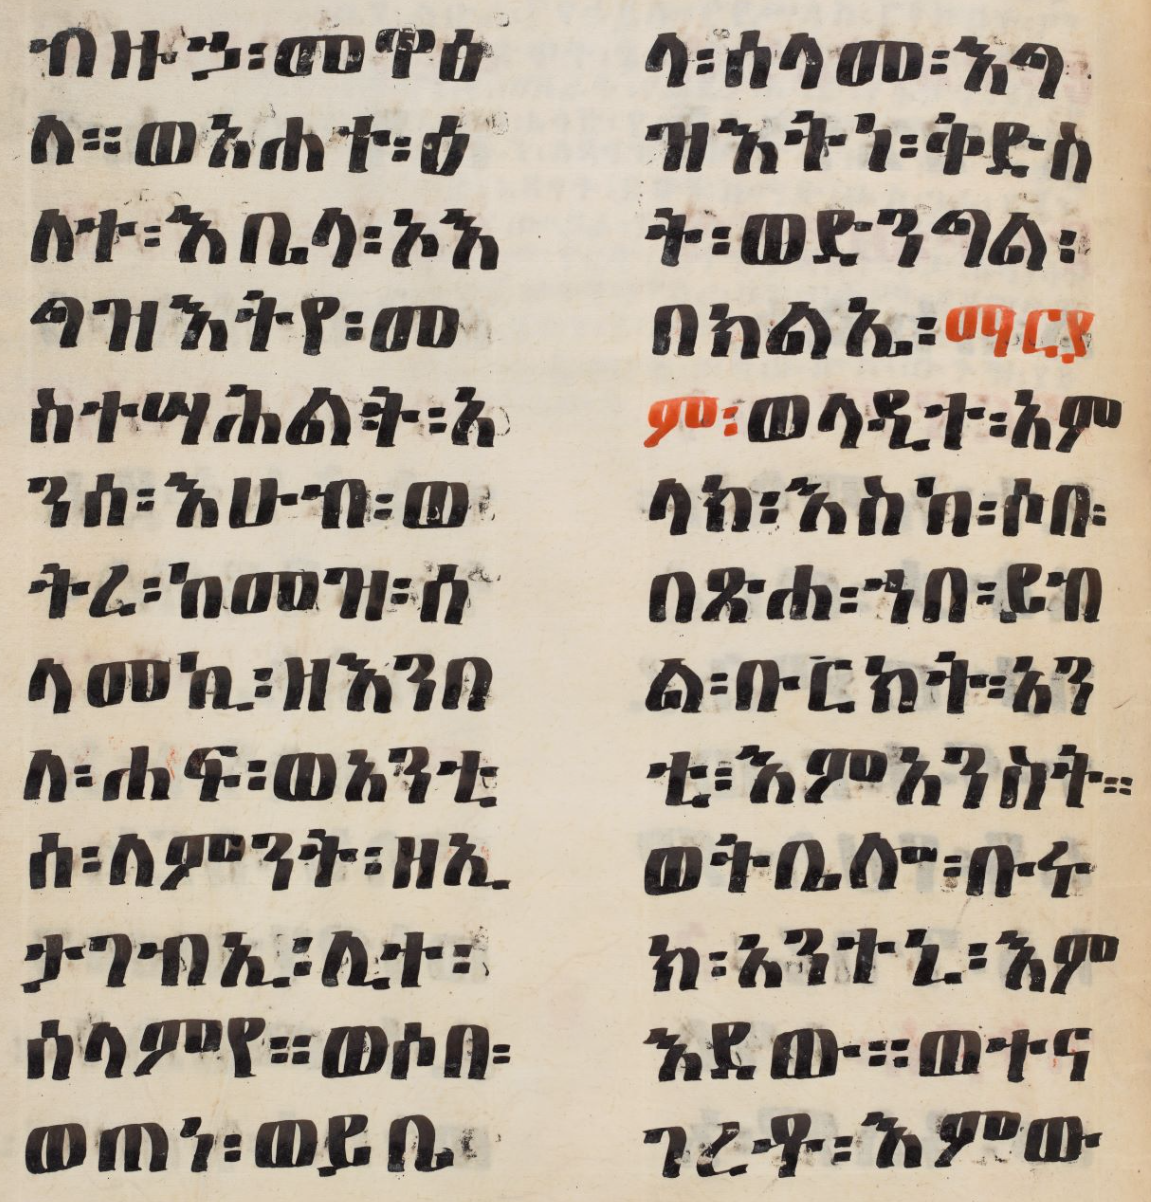 ብዙኃ፡መዋዕ
ለ፡፡ወአሐተ፡ዕ
ለተ፡እቤላ፡ኦእ
ግዝእትየ፡መ
ስተሣሕልት፡አ
ንሰ፡እሁብ፡ወ
ትረ፡ከመዝ፡ሰ
ላመኪ፡ዘእንበ
ለ፡ሐፍ፡ወአንቲ
ሰ፡ለምንት፡ዘኢ
ታገብኢ፡ሊተ፡
ሰላምየ፡፡ወሶበ፡
ወጠነ፡ወይቤ
ላ፡ሰላመ፡እግ
ዝእትነ፡ቅድስ
ት፡ወድንግል፡
በክልኤ፡ማርያ
ም፡ወላዲተ፡አም
ላክ፡እስከ፡ሶበ፡
በጽሐ፡ኀበ፡ይብ
ል፡ቡርክት፡አን
ቲ፡እምአንስት፡፡
ወትቤሎ፡ቡሩ
ክ፡አንተኒ፡እም
እደው፡፡ወተና
ገረቶ፡እምው